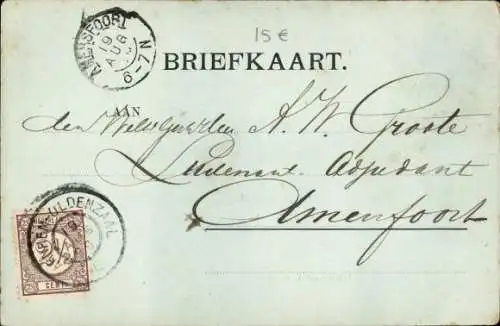 15 €
AMERSFOORT
19
AUG
6-7 N
BRIEFKAART.
AAN
den Weled. Heer A. W. Groote
Luitenant Adjudant
Amersfoort
OLDENZAAL
CENT